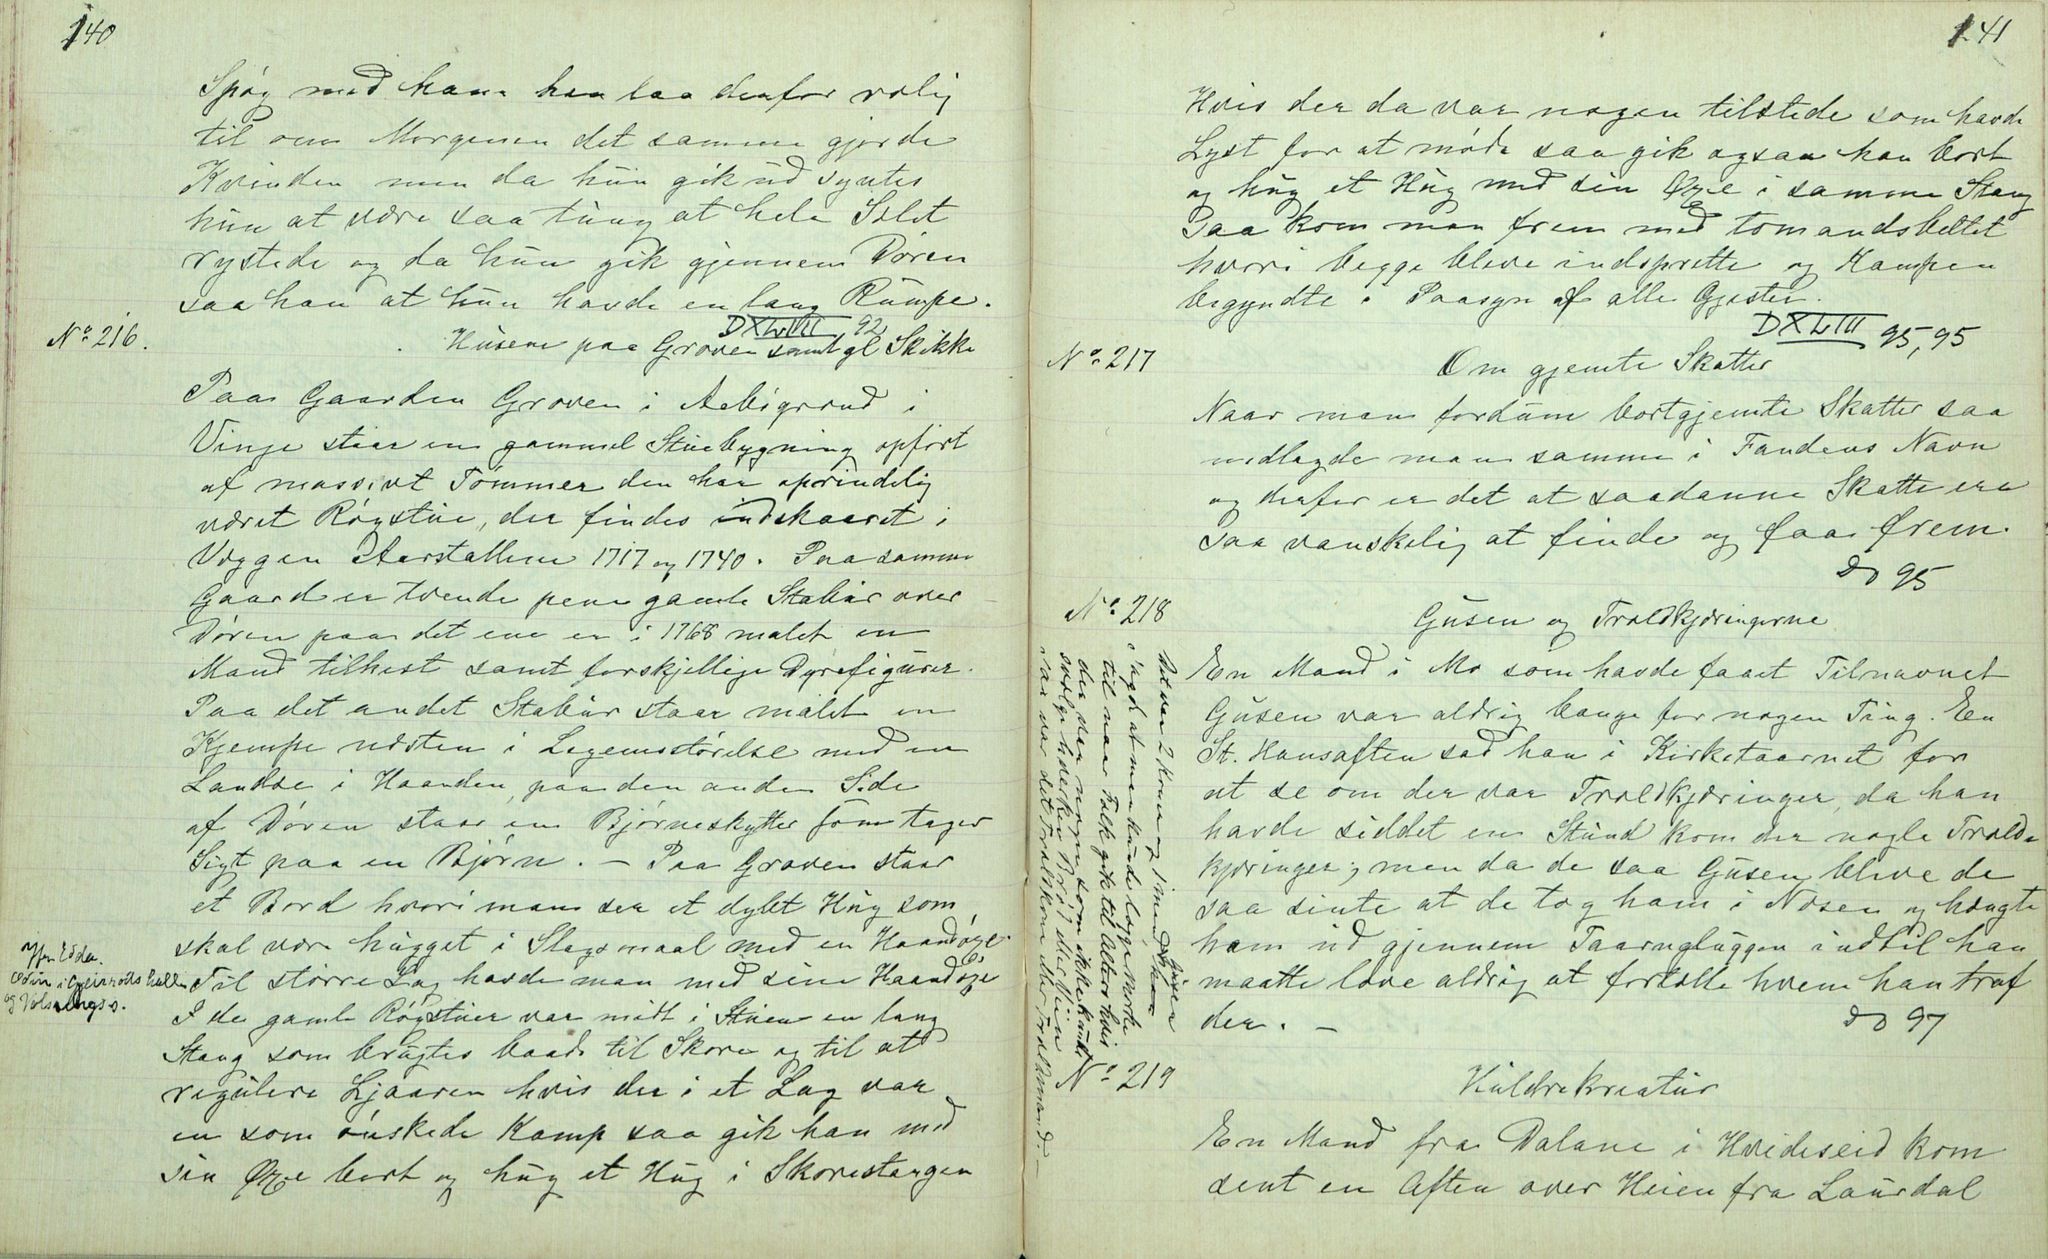 140
Spøg med ham han laa derfor rolig
til om Morgenen det samme gjorde
Kvinden men da hun gik ud syntes
hun at være saa tung at hele Selet
rystede og da hun gik gjennem Døren
saa han at hun havde en lang Rumpe.
DXLVIII 92
No 216.
Husene paa Groven samt gl Skikke
Paa Gaarden Groven i Aebigrend i
Vinje staar en gammel Stuebygning opført
af massivt Tømmer den har oprindelig
været Røgstue, der findes indskaaret i
Væggen Aarstallene 1717 og 1740. Paa samme
Gaard er tvende pene gamle Stabur over
Døren paa det ene er i 1768 malet en
Mand tilhest samt forskjellige Dyrefigurer.
Paa det andet Stabur staar malet en
Kjempe næsten i Legemsstørelse med en
Landse i Haanden, paa den anden Side
af Døren staar en Bjørneskytter som tager
Sigt paa en Bjørn. – Paa Groven staar
et Bord hvori man ser et dybt Hug som
skal være hugget i Slagsmaal med en Haandøxe.
Til større Lag havde man med sine Haandøxe
I de gamle Røgstuer var midt i Stuen en lang
Stang som brugtes baade til Skore og til at
regulere Ljaaren hvis der i et Lag var
en som ønskede Kamp saa gik han med
sin Øxe bort og hug et Hug i Skorestangen
jfr Edda.
Odin i Geirrøds hallen
og Vols
141
Hvis der da var nogen tilstede som havde
Lyst for at møde saa gik ogsaa han bort
og hug et Hug med sin Øxe i samme Stang
Saa kom man frem med tomandsbeltet
hvori begge bleve indsprette og Kampen
begyndte i Paasyn af alle Gjester.
DXLIII 95, 95
No 217
Om gjemte Skatter
Naar man fordum bortgjemte Skatter saa
nedlagde man samme i Fandens Navn
og derfor er det at saadanne Skatte ere
saa vanskelig at finde og faa frem.
Do 95
No 218
Gusen og Troldkjæringerne
En Mand i Mo som havde faaet Tilnavnet
Gusen var aldrig bange for nogen Ting. En
St. Hansaften sad han i Kirketaarnet for
at se om der var Troldkjæringer, da han
havde siddet en Stund kom der nogle Trold=
kjæringer; men da de saa Gusen bleve de
saa sinte at de tog ham i Næsen og hængte
ham ud gjennem Taarngluggen indtil han
maatte love aldrig at fortælle hvem han traf
der. –
Do 97
Det var 2 Kone og 1 Mand
Gusen
sagde at man kunde lægge Merke
til naar Folk gik til Alters hvis
der var nogen som ikke kunde
svælge hverken Brød eller Vien
saa var det Troldkone eller Troldmand. –
No 219
Huldrekreatur
En Mand fra Dalane i Hvideseid kom
sent en Aften over Heien fra Laurdal